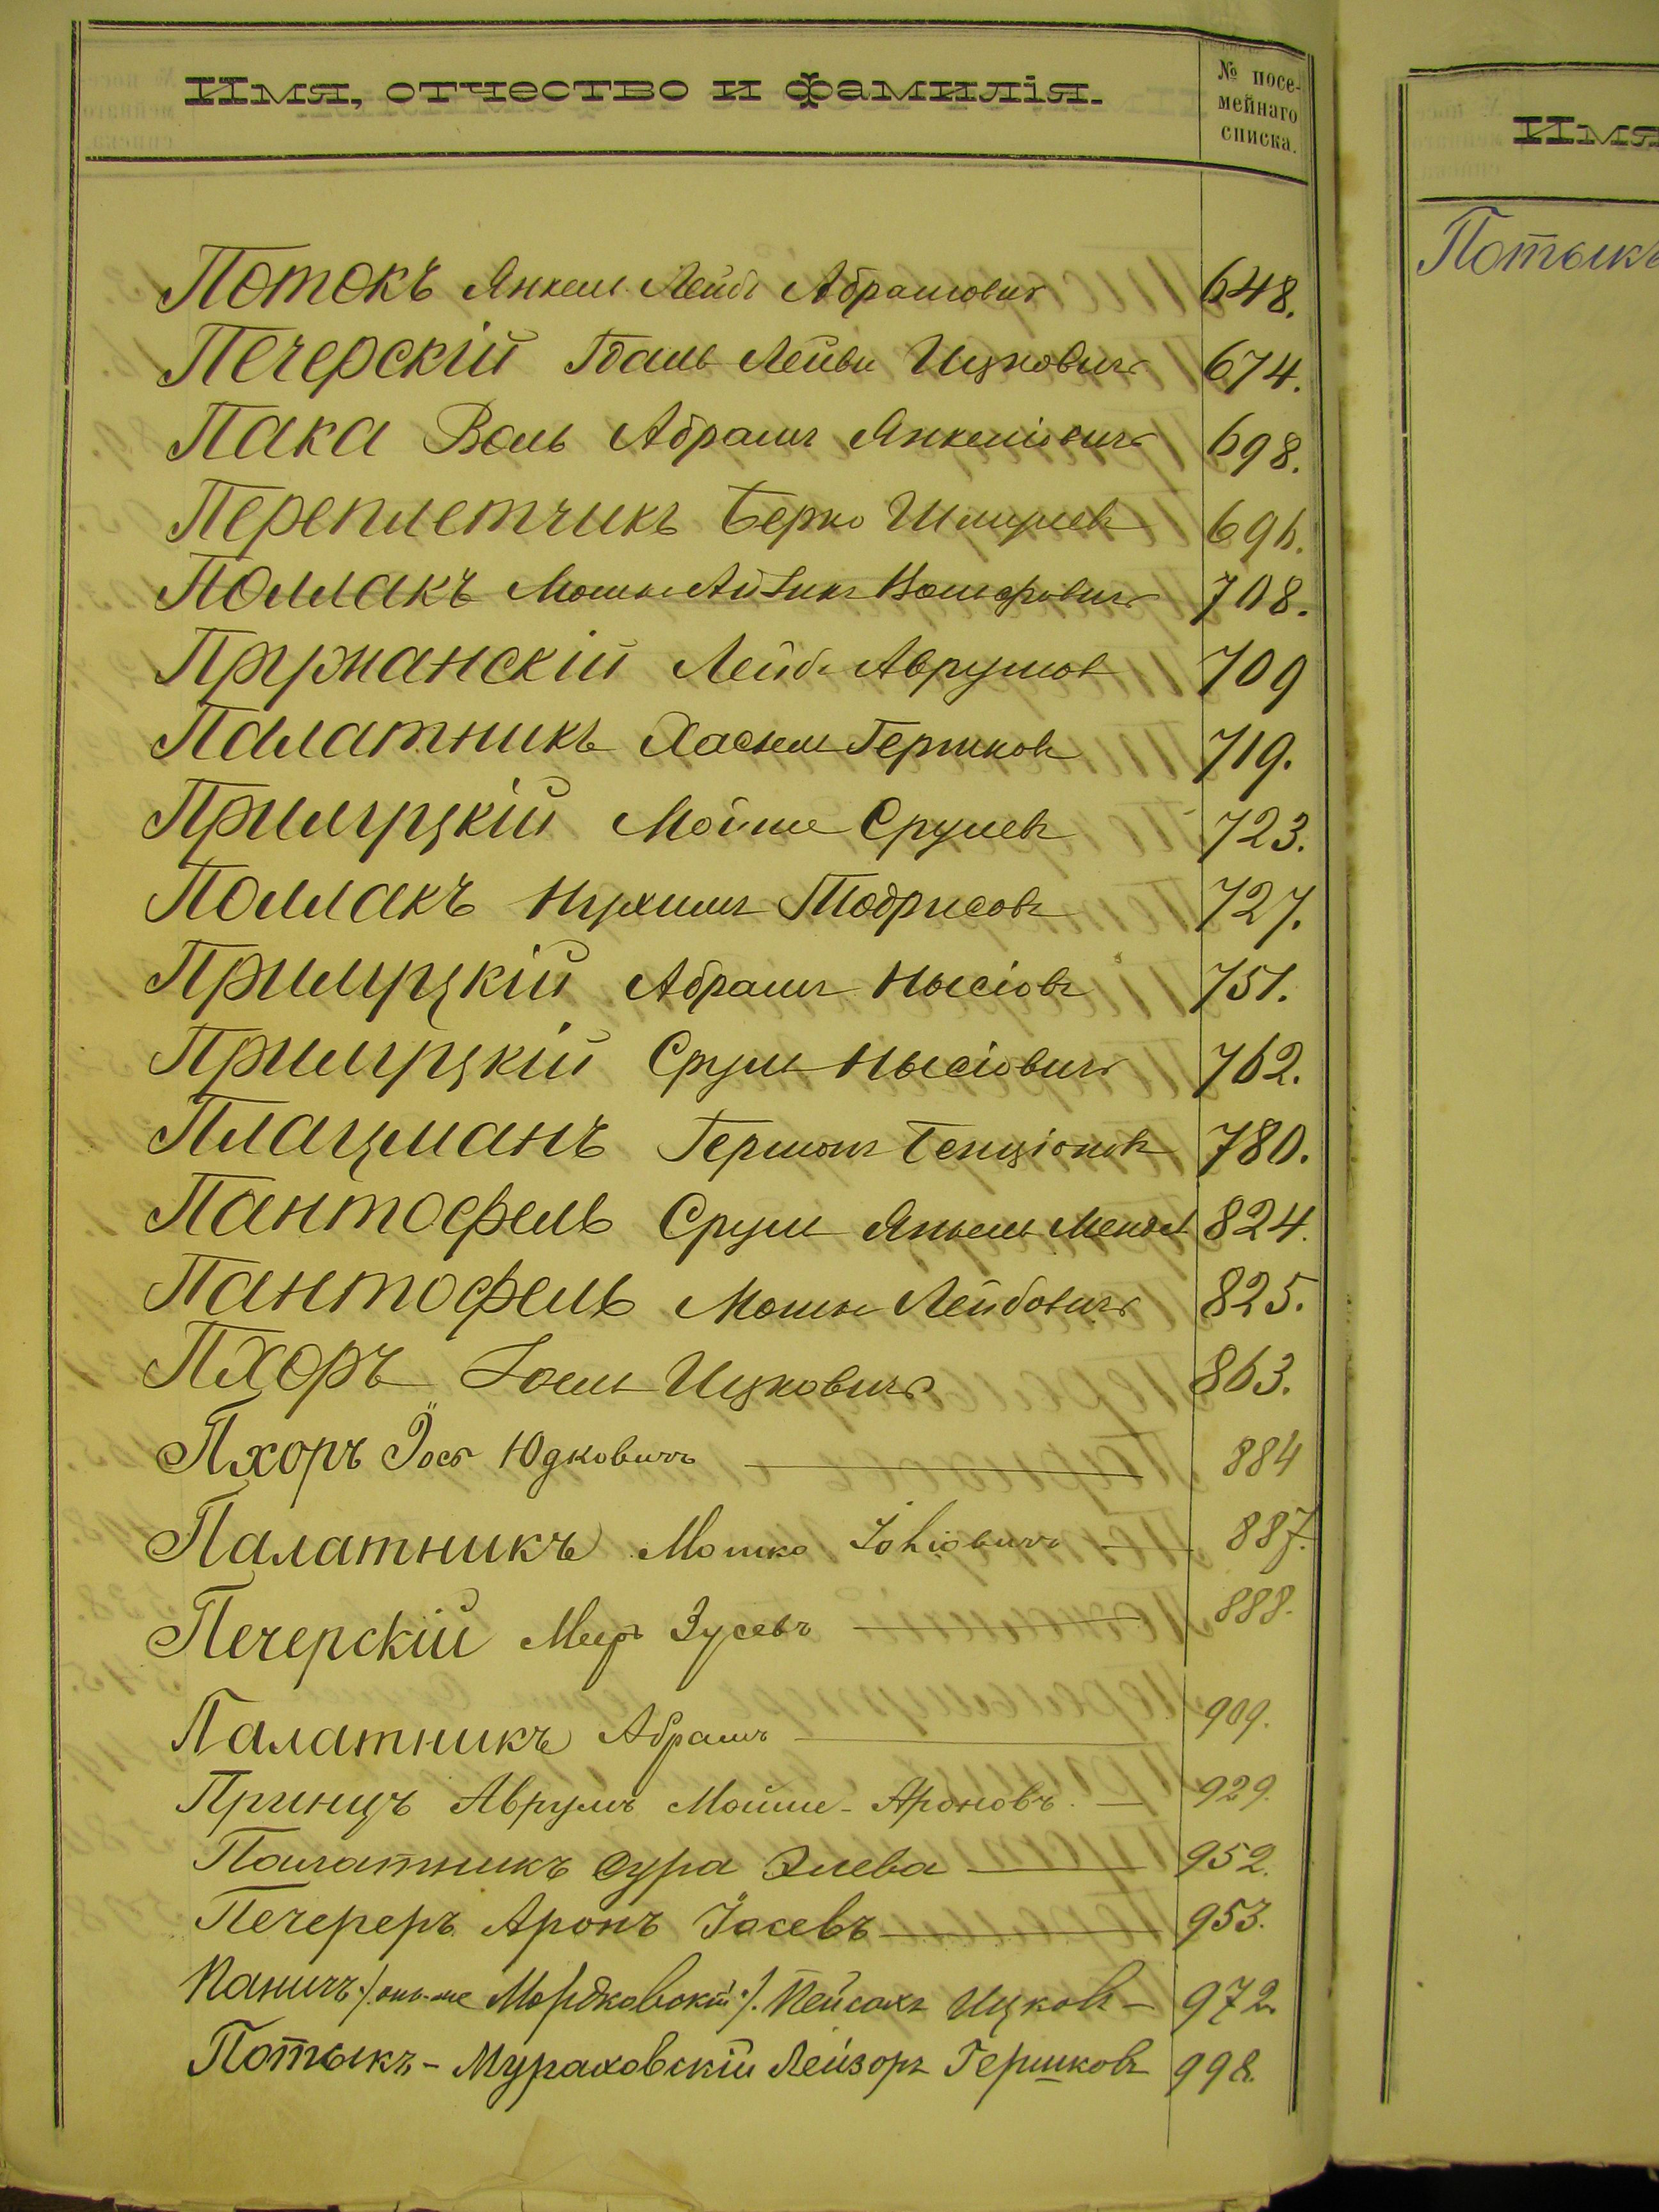 Имя, отчество и фамилія.
№ посе-
мейнаго
списка.
Потокъ Янкель Лейбъ Абрамовичъ 648.
Печерскій Лейви Ицковичъ 674.
Пака Воль Абрамъ Янкеліовичъ 698.
Переплетчикъ Берко Шмулевъ 696.
Поллакъ Мошко Айзикъ 708.
Пружанскій Лейбъ Аврумовъ 709
Палатникъ Хаскель Гершковъ 719.
Прилуцкій Мойше Срулевъ 723.
Поллакъ Нухимъ Тодрисовъ 727.
Прилуцкій Абрамъ Нысіовъ 751.
Прилуцкій Сруль Нысіовичъ 762.
Плацманъ Гершонъ Бенціоновъ 780.
Пантофель Сруль Янкель Мендел 824.
Пантофель Мошко Лейбовичъ 825.
Пхоръ Іосель Ицковичъ 863.
Пхоръ Іосъ Юдковичъ 884
Палатникъ Мошко 887.
Печерскій Меер Зусевъ 888.
Палатникъ Абрамъ 909.
Принцъ Аврумъ Мойше-Ароновъ. 929.
Палатникъ Сура Элева 952.
Печереръ Аронъ Іосевъ 953.
Паничъ /: онъ-же Мордковскій :/. Пейсахъ Ицковъ 972.
Потыкъ-Мураховскій Лейзоръ Гершковъ 998.
Имя
Потыкъ